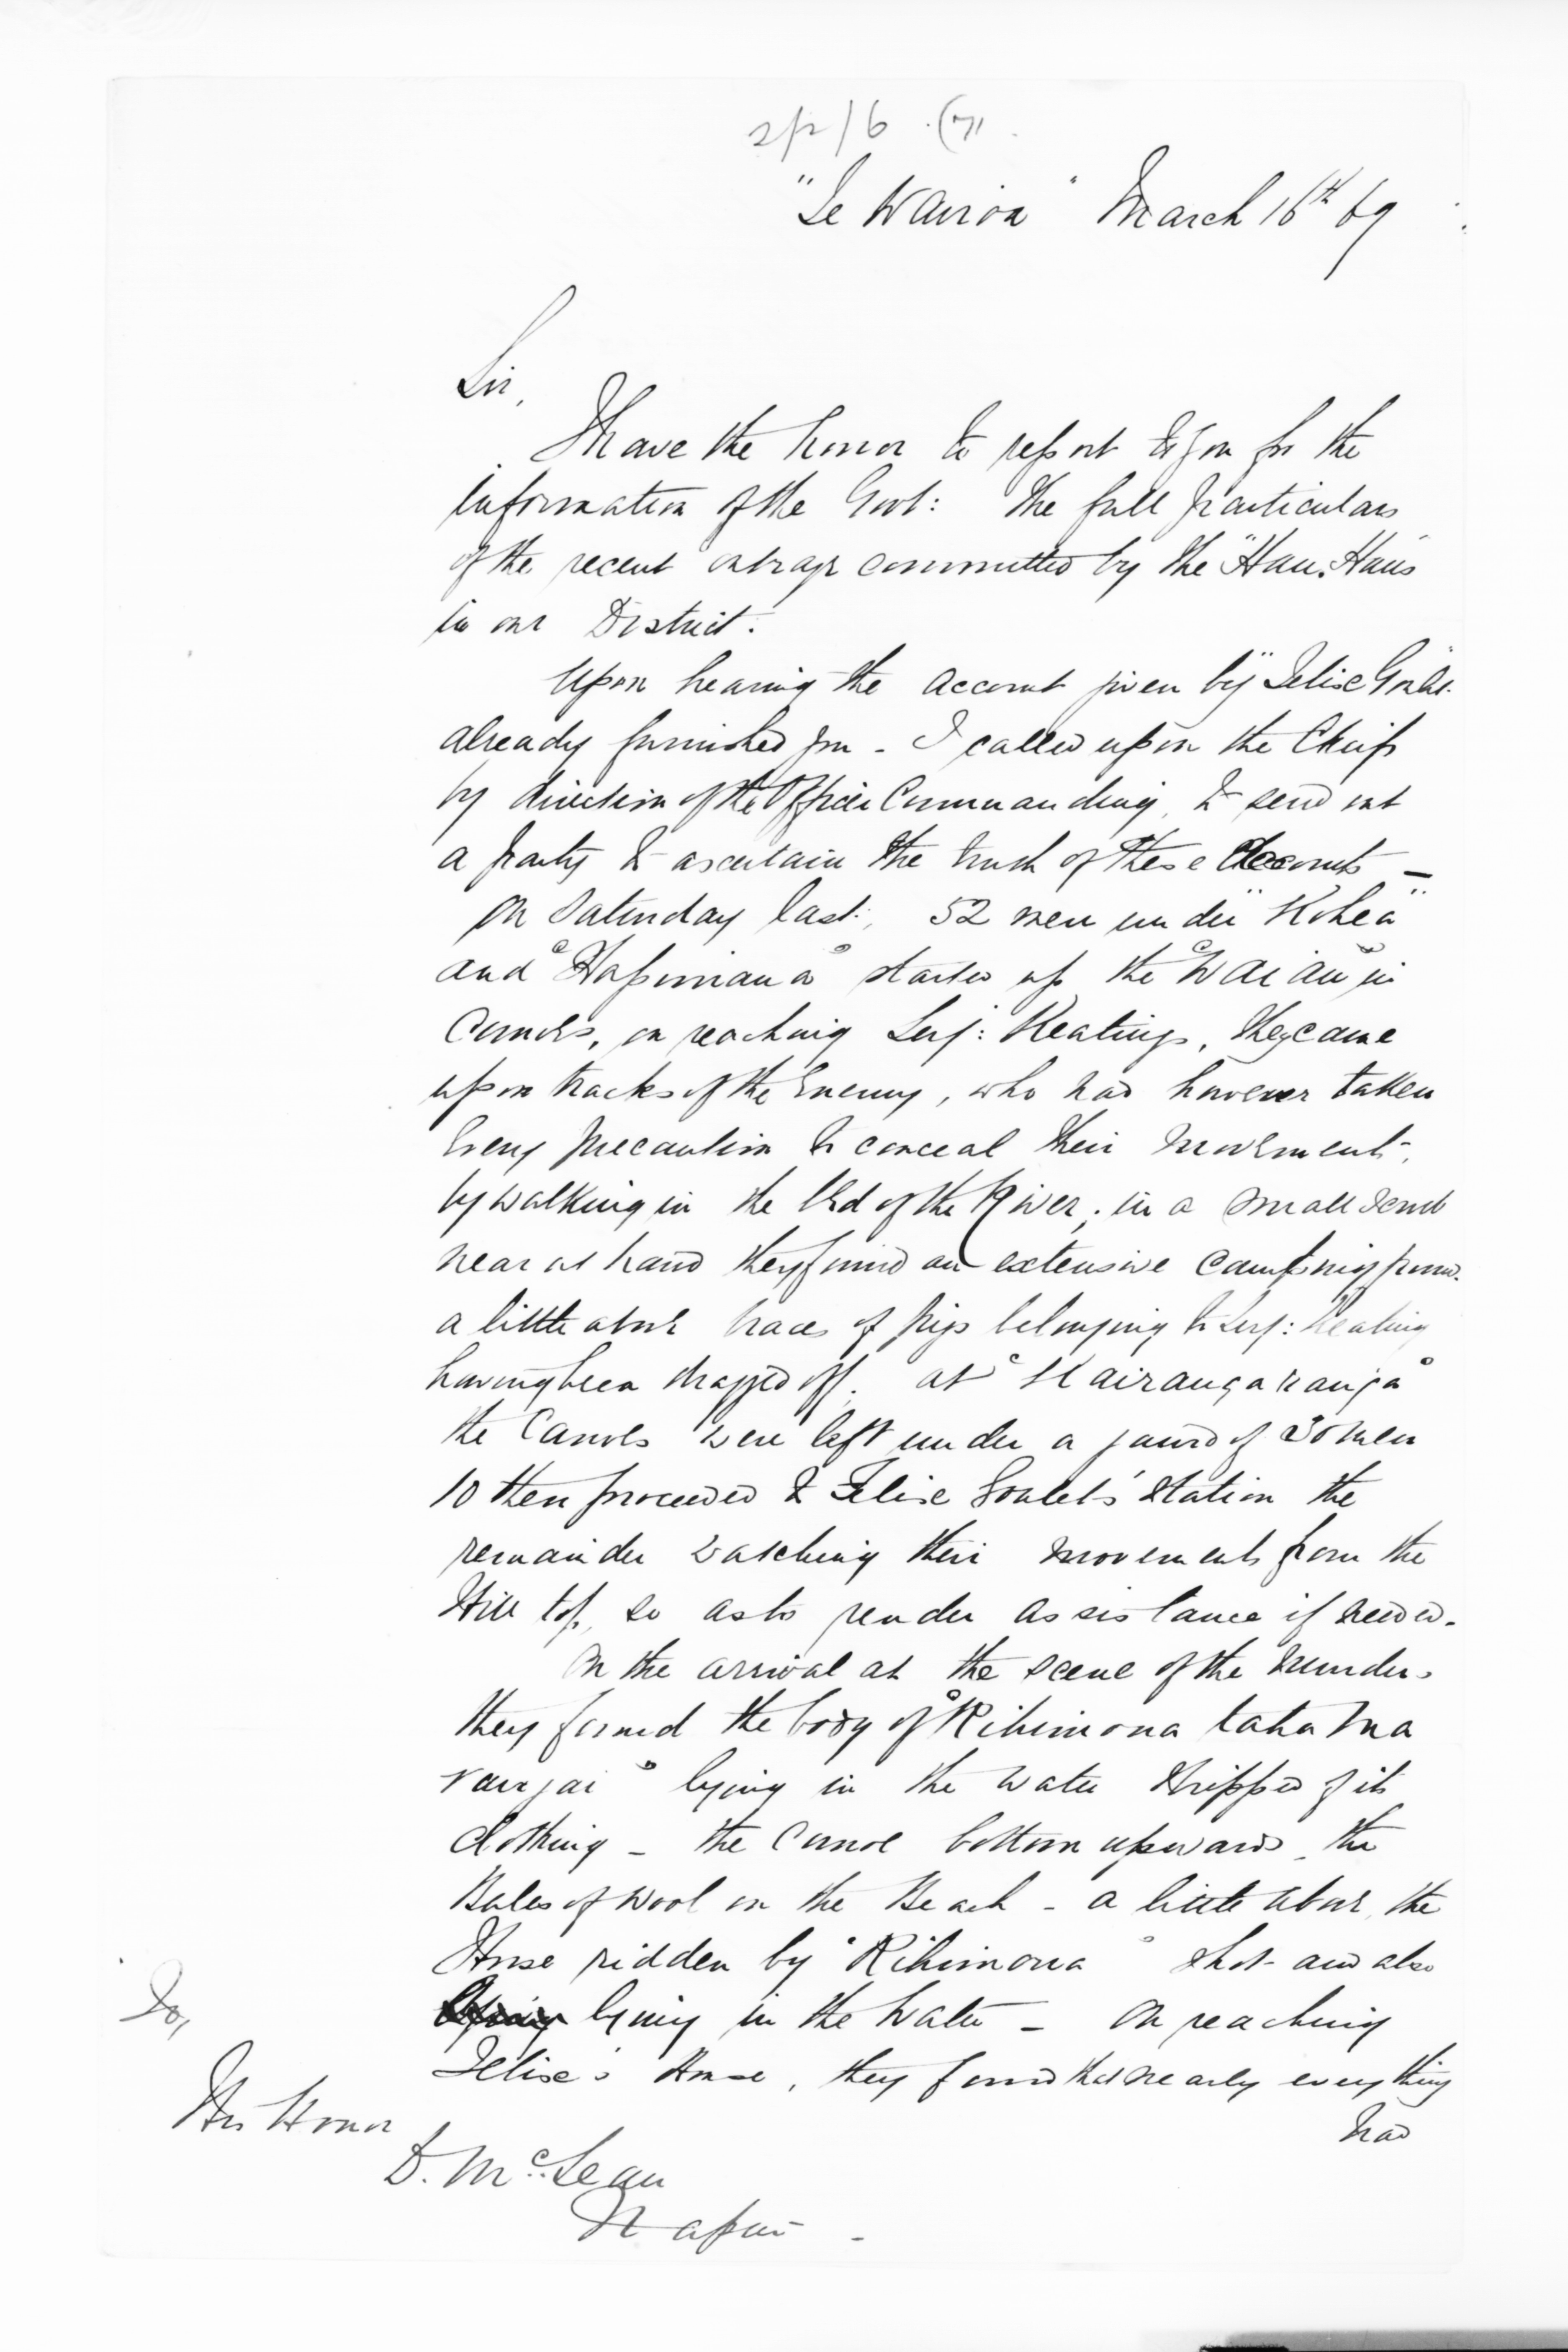 "Te Wairoa" March 16th 69
Sir,
I have the honor to report to you for the
information of the Govt: the full particulars
of the recent outrage committed by the "Hau. Haus"
in our District.
Upon hearing the account given by "Felise Goulet"
already furnished you - I called upon the Chiefs
by direction of the Officer Commanding, to send out
a party to ascertain the truth of these Accounts -
On Saturday last, 52 men under "Kohea"
and "Hapimana" started up the "Waiau" in
Canoes, on reaching Serj: Keatings, they came
upon tracks of the Enemy, who had however taken
every precaution to conceal their movements,
by walking in the bed of the River; in a small scrub
near at hand they found an extensive camping ground.
a little above traces of pigs belonging to Serj: Keating
having been dragged off. at "Kairangaranga"
the Canoes were left under a guard of 30 men
10 then proceeded to Felise Goulet's Station the
remainder watching their movements from the
Hill top, so as to render assistance if needed.
On the arrival at the scene of the murder,
they found the body of "Rihimona taka ma
rangai" lying in the water stripped of its
clothing - the Canoe bottom upwards, the
Bales of Wool on the Beach - a little above, the
Horse ridden by "Rihimona" shot and also
lying in the water - On reaching
Felise's House, they found that nearly everything
had
To,
His Honor
D. McLean
Napier -